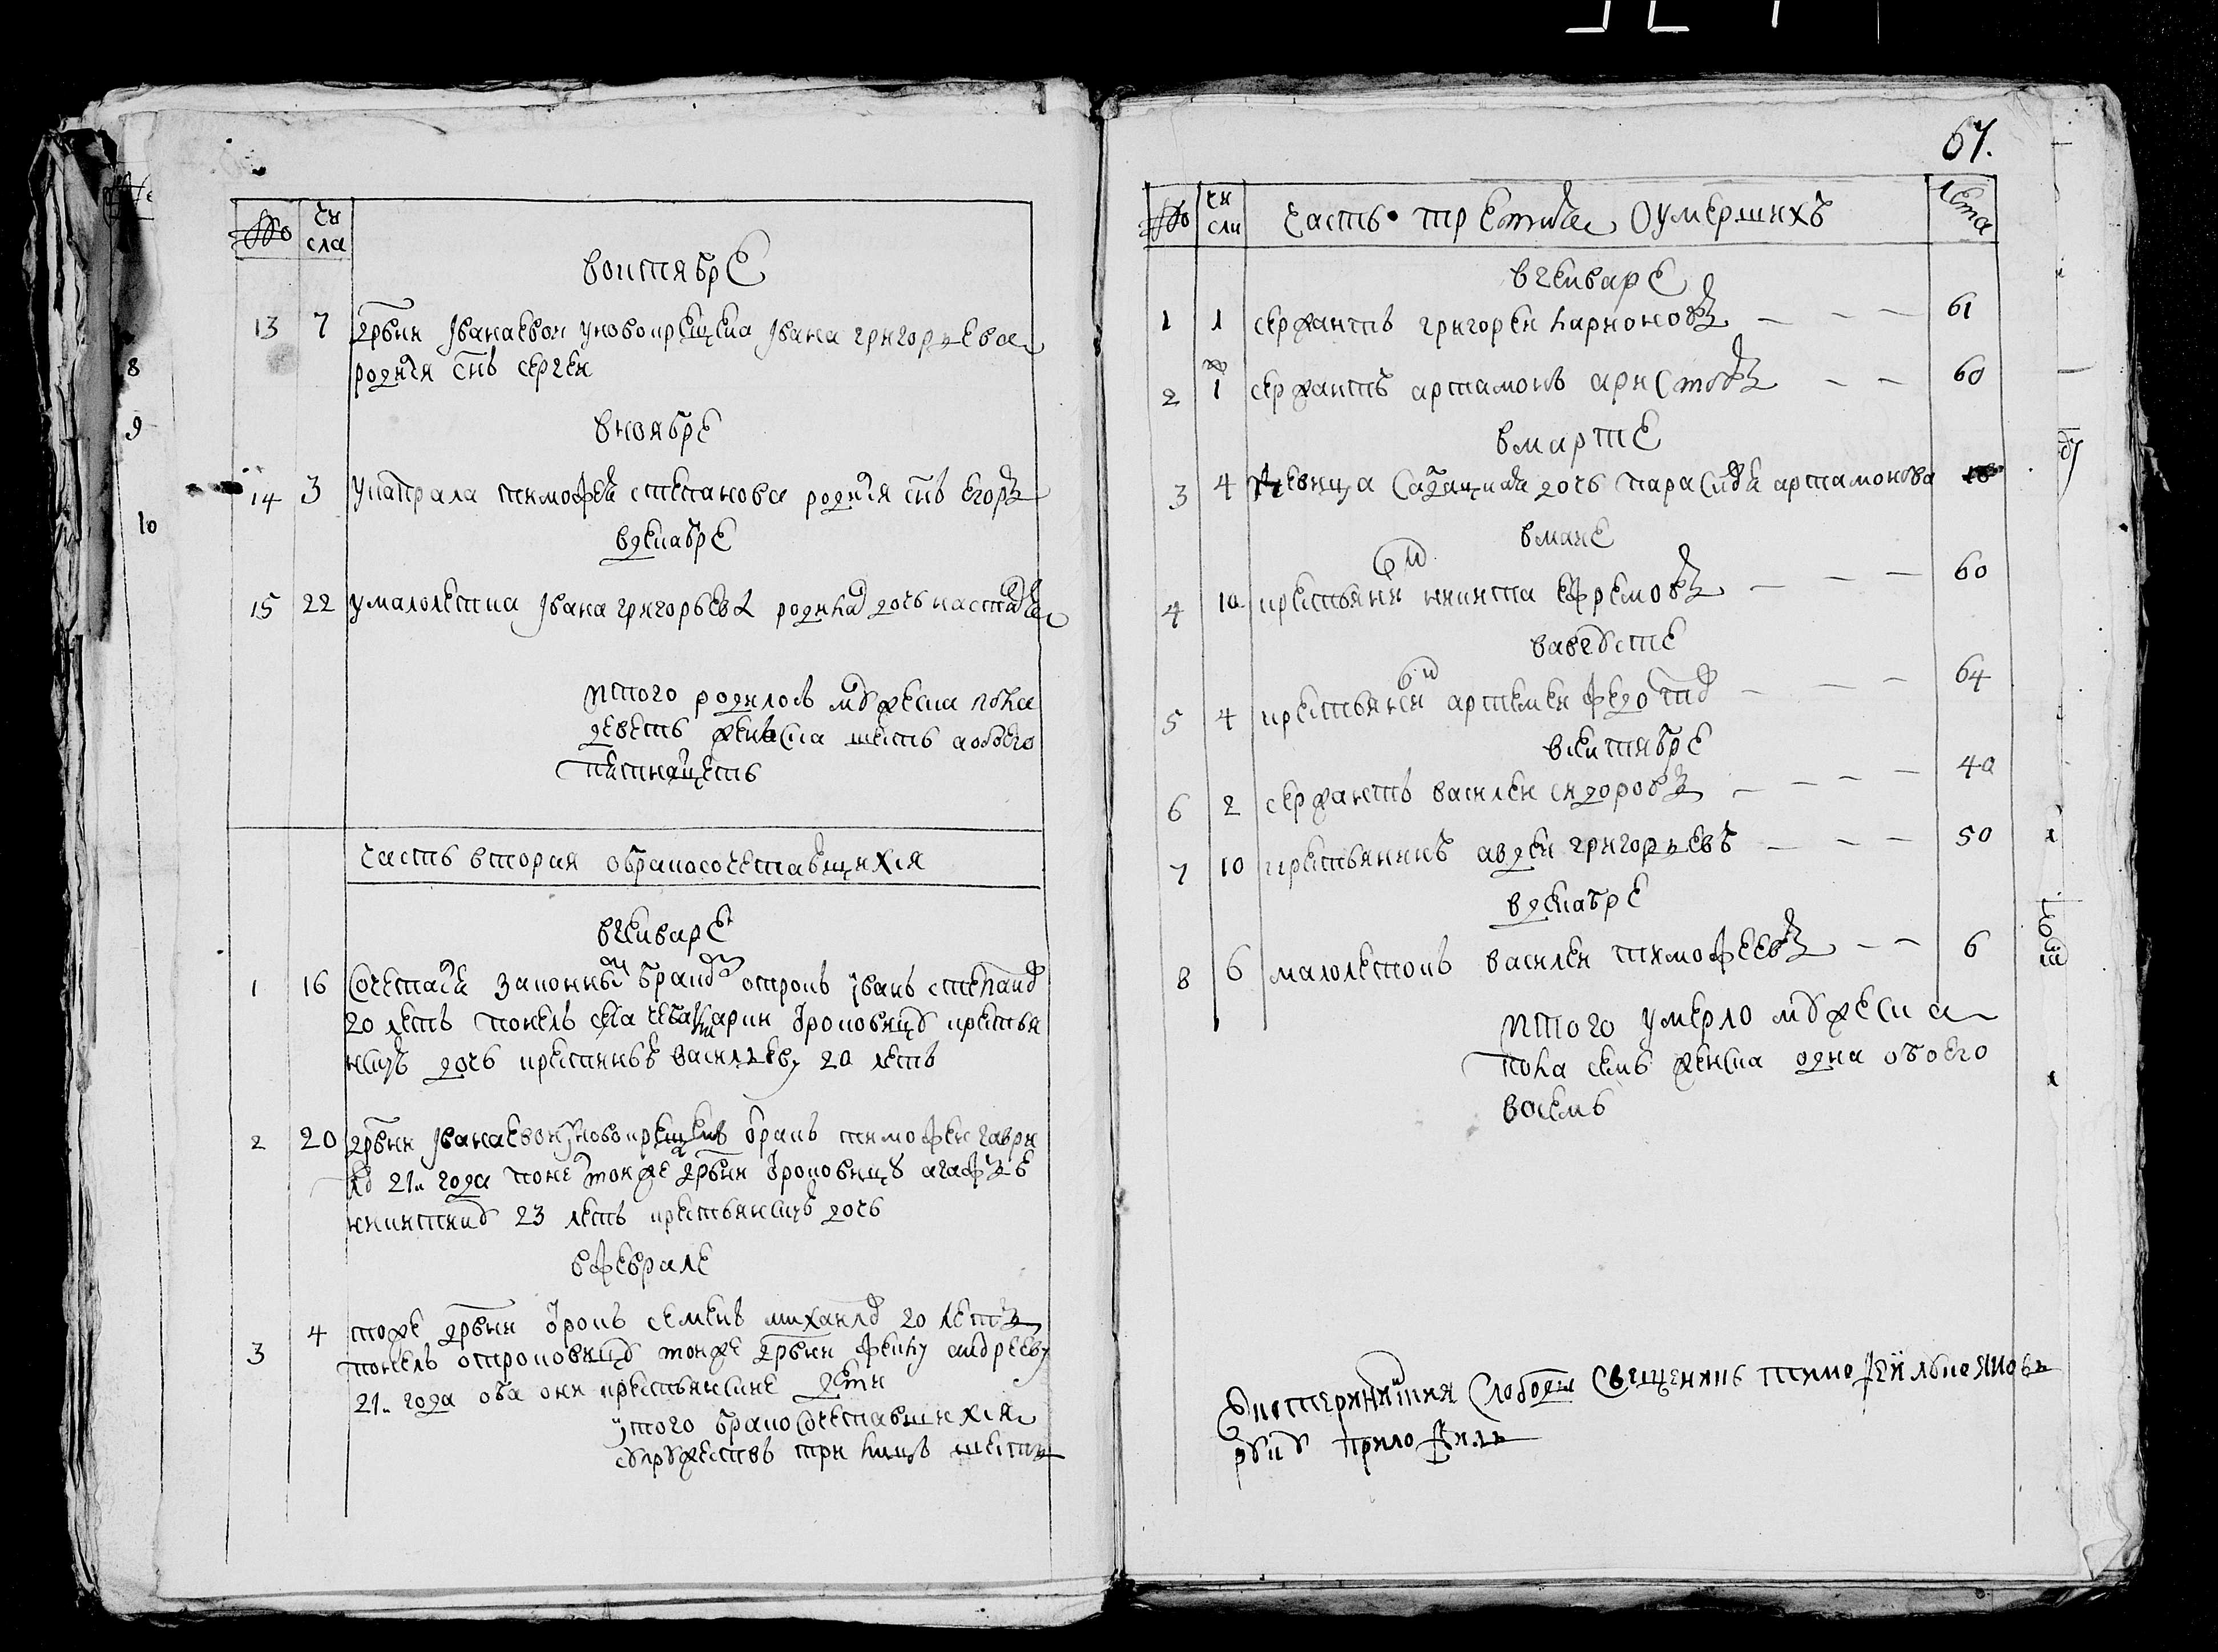 № чи
сла
воктябрѣ
13 7 дрвни Iванаевои у новокрещена Iвана григорьева
родися снъ сергеи
в ноябрѣ
14 3 у капрала тимофея степанова родися снъ егоръ
в декабрѣ
15 22 у малолетка Iвана григорьева родилас дочь настасия
итого родилось мужеска пола
деветь женска шесть а обоего
пятнатцеть
часть вторая о бракосочетавшихся
в генварѣ
1 16 сочетался законным браком отрокъ Iванъ степанов
20 летъ понелъ села отроковицу крестья
нскую дочь васильеву 20 летъ
2 20 дрвни Iванаевои новокрещенъ тимофеи гаври
лов 21 года понел тоиже дрвни отроковицу агафью
никитину 23 летъ крестьянскую дочь
в феврале
3 4 тоже дрвни отрокъ семенъ михаилов 20 летъ
понелъ отроковицу тоиже дрвни феклу андрееву
21 года оба они крестьянские дети
итого бракосочетавшихся
супружествъ три лицъ шесть
67.
№ чи
сли часть третия о умершихъ лета
в генварѣ
1 1 сержантъ григореи ларионовъ 61
2 1 сержантъ артамонъ аристовъ 60
в марте
3 4 девица салдацкая дочь парасковя артамонова
в маие
4 10 крестьянин никита ефремовъ 60
в августе
5 4 крестьянин артемеи федотов 64
в сентябре
6 2 сержантъ василеи сидоровъ 40
7 10 крестьянинъ авдеи григорьевъ 50
в декабрѣ
8 6 малолетокъ василеи тимофеевъ 6
итого умерло мужеска
пола семь женска одна обоего
восемь
Екатерининския слободы священникъ тимофеи лукояновъ
руку приложилъ